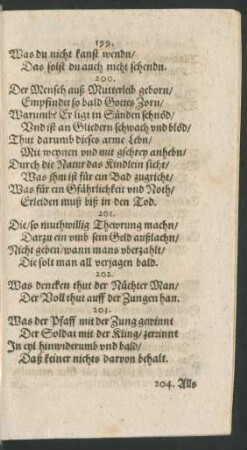 199.
Was du nicht kanst wendn/
Das solst du auch nicht schendn.
200.
Der Mensch auß Mutterleib geborn/
Empfindet so bald Gottes Zorn/
Warumb? Er ligt in Sünden schnöd/
Vnd ist an Gliedern schwach vnd blöd/
Thut darumb dieses arme Lebn/
Mit weynen vnd mit gschrey anhebn/
Durch die Natur das Kindlein sicht/
Was ihm ist für ein Bad zugricht/
Was für ein Gfährlichkeit vnd Noth/
Erleiden muß biß in den Tod.
201.
Die/ so muthwillig Thewrung machn/
Darzu ein vmb sein Geld außlachn/
Nicht geben/ wann mans vberzahlt/
Die solt man all verjagen bald.
202.
Was dencken thut der Nüchter Man/
Der Voll thut auff der Zungen han.
203.
Was der Pfaff mit der Zung gewinnt
Der Soldat mit der Kling/ zerinnt
In eyl hinwiderumb vnd bald/
Daß keiner nichts darvon behalt.
204. Alls